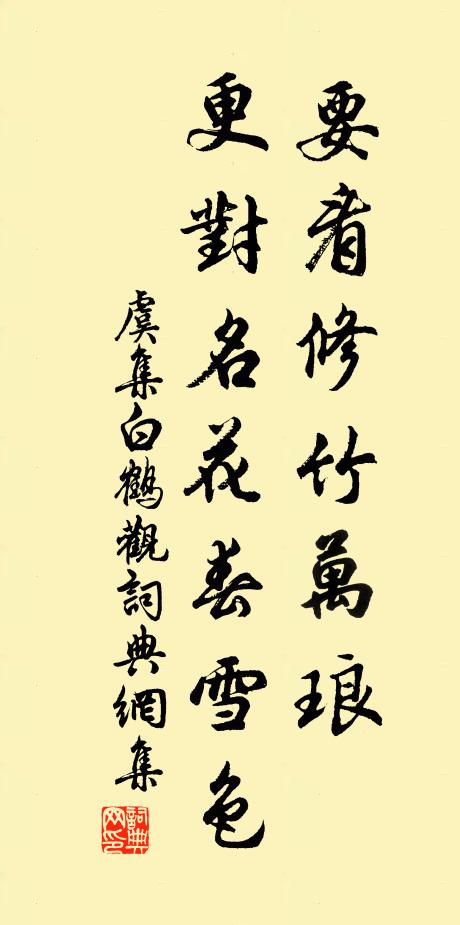 要看修竹萬琅
更對名花春雪色
虞集白鶴觀詞典網集
詞典網印